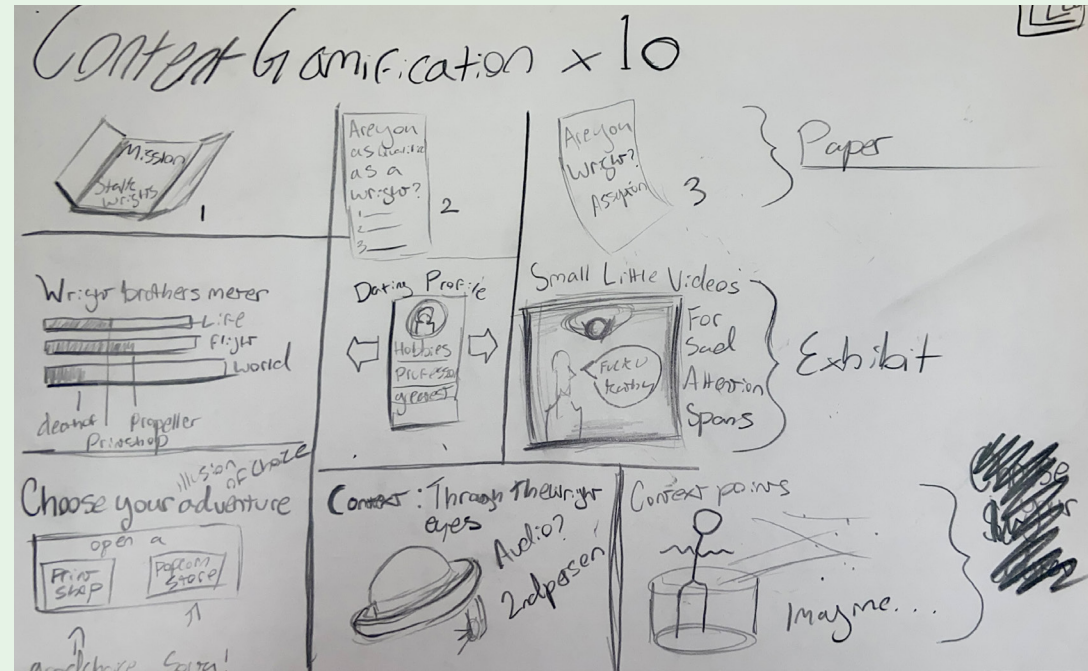 Content Gamification x 10
Mission
Stalk
Wrights
1
Are you
as
as a
Wright?
1
2
3
2
Are you
Wright?
3
Paper
Wright brothers meter
Life
flight
world
Propeller
Printshop
Dating Profile
Hobbies
greatest
Small Little Videos
For
Sad
Attention
Spans
Exhibit
illusion
of choice
Choose your adventure
open a
Print
shop
Popcorn
Store
good choice
Sorry!
Context: Through the wright
eyes
Audio?
2nd person
Context points
Imagine...